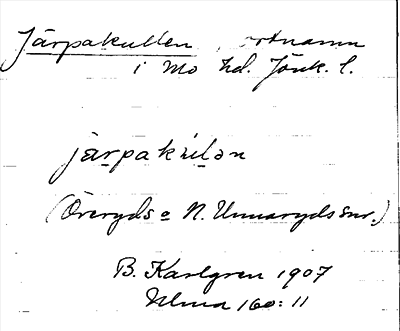 Järpakullen, ortnamn
i Mo hd. Jönk. l.
järpakulən
(Öreryds o N. Unnaryds snr.)
B. Karlgren 1907
Ulma 160:11